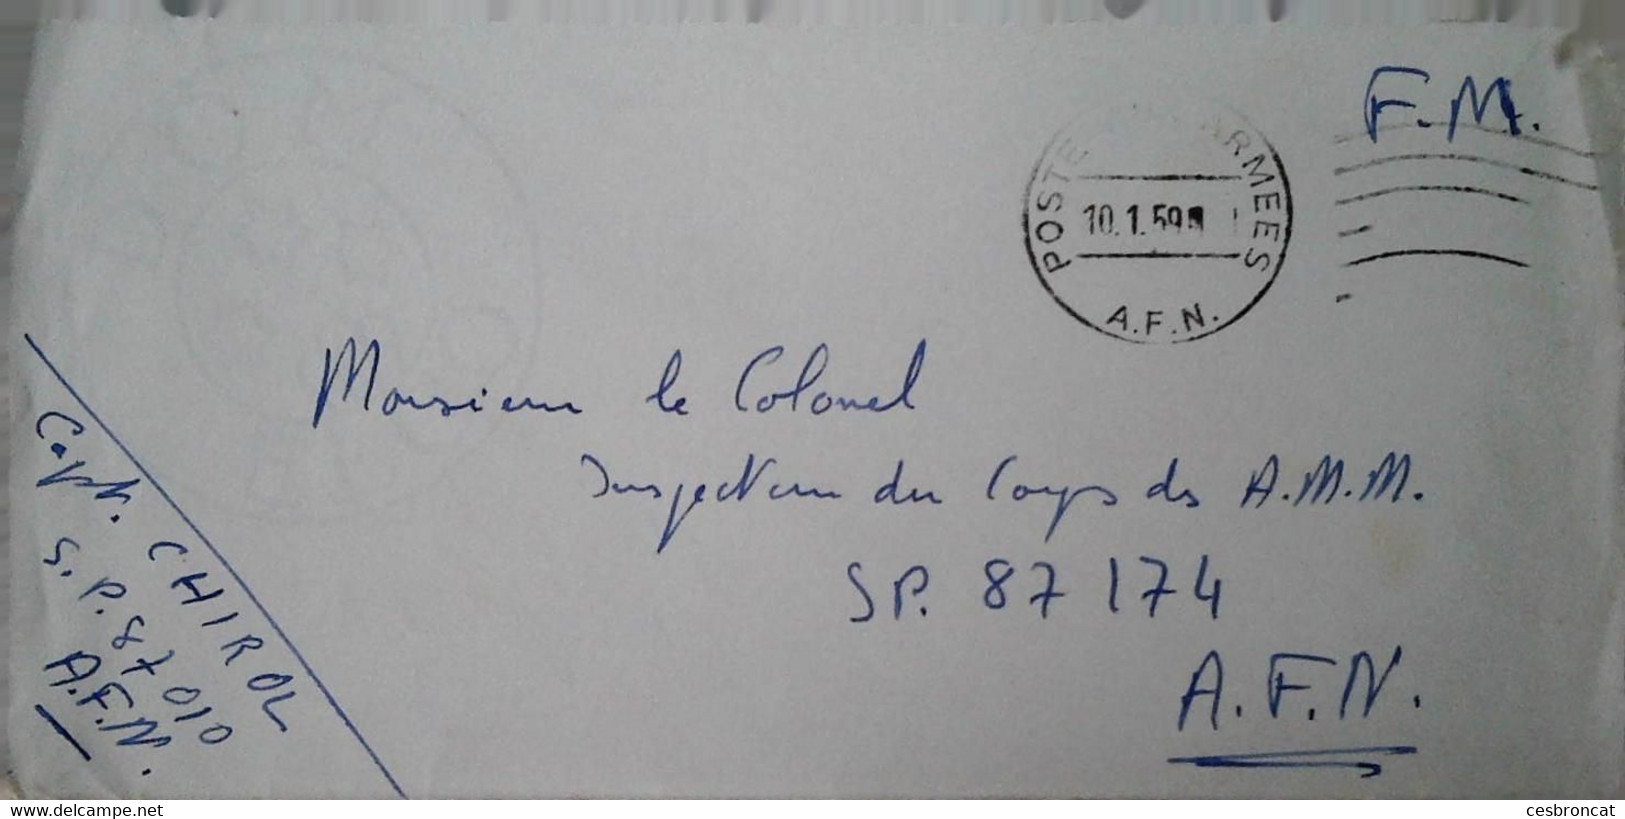 F.M.
POSTE ARMEES
10.1.59
A.F.N.
Monsieur le Colonel
Inspecteur du Corps des A.M.M.
SP. 87174
A.F.N.
Capt. CHIROL
S.P. 87010
A.F.N.
www.delcampe.net
cesbroncat